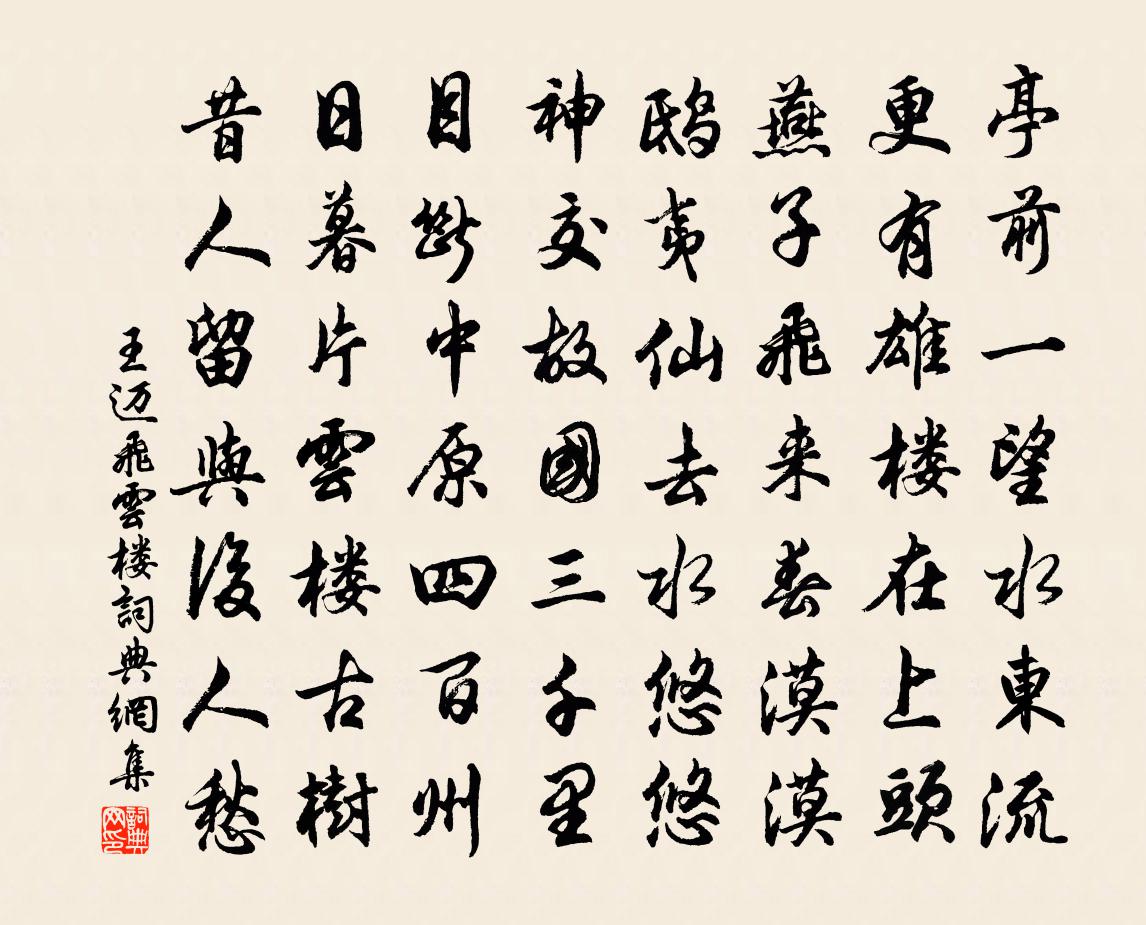 亭前一望水東流
更有雄楼在上頭
燕子飛来春漠漠
鴟夷仙去水悠悠
神交故國三千里
目断中原四百州
日暮片雲楼古樹
昔人留與後人愁
王迈飛雲楼詞典網集
詞典网印